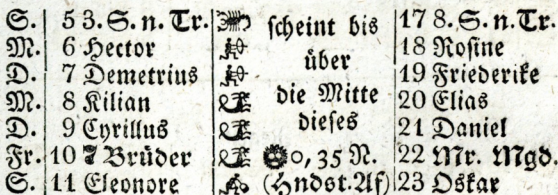 S. 5 3. S. n. Tr. scheint bis 17 8. S. n. Tr.
M. 6 Hector über 18 Rosine
D. 7 Demetrius 19 Friederike
M. 8 Kilian die Mitte 20 Elias
D. 9 Cyrillus dieses 21 Daniel
Fr. 10 7 Brüder 0, 35 N. 22 Mr. Mgd.
S. 11 Eleonore (Hndst.Af) 23 Oskar